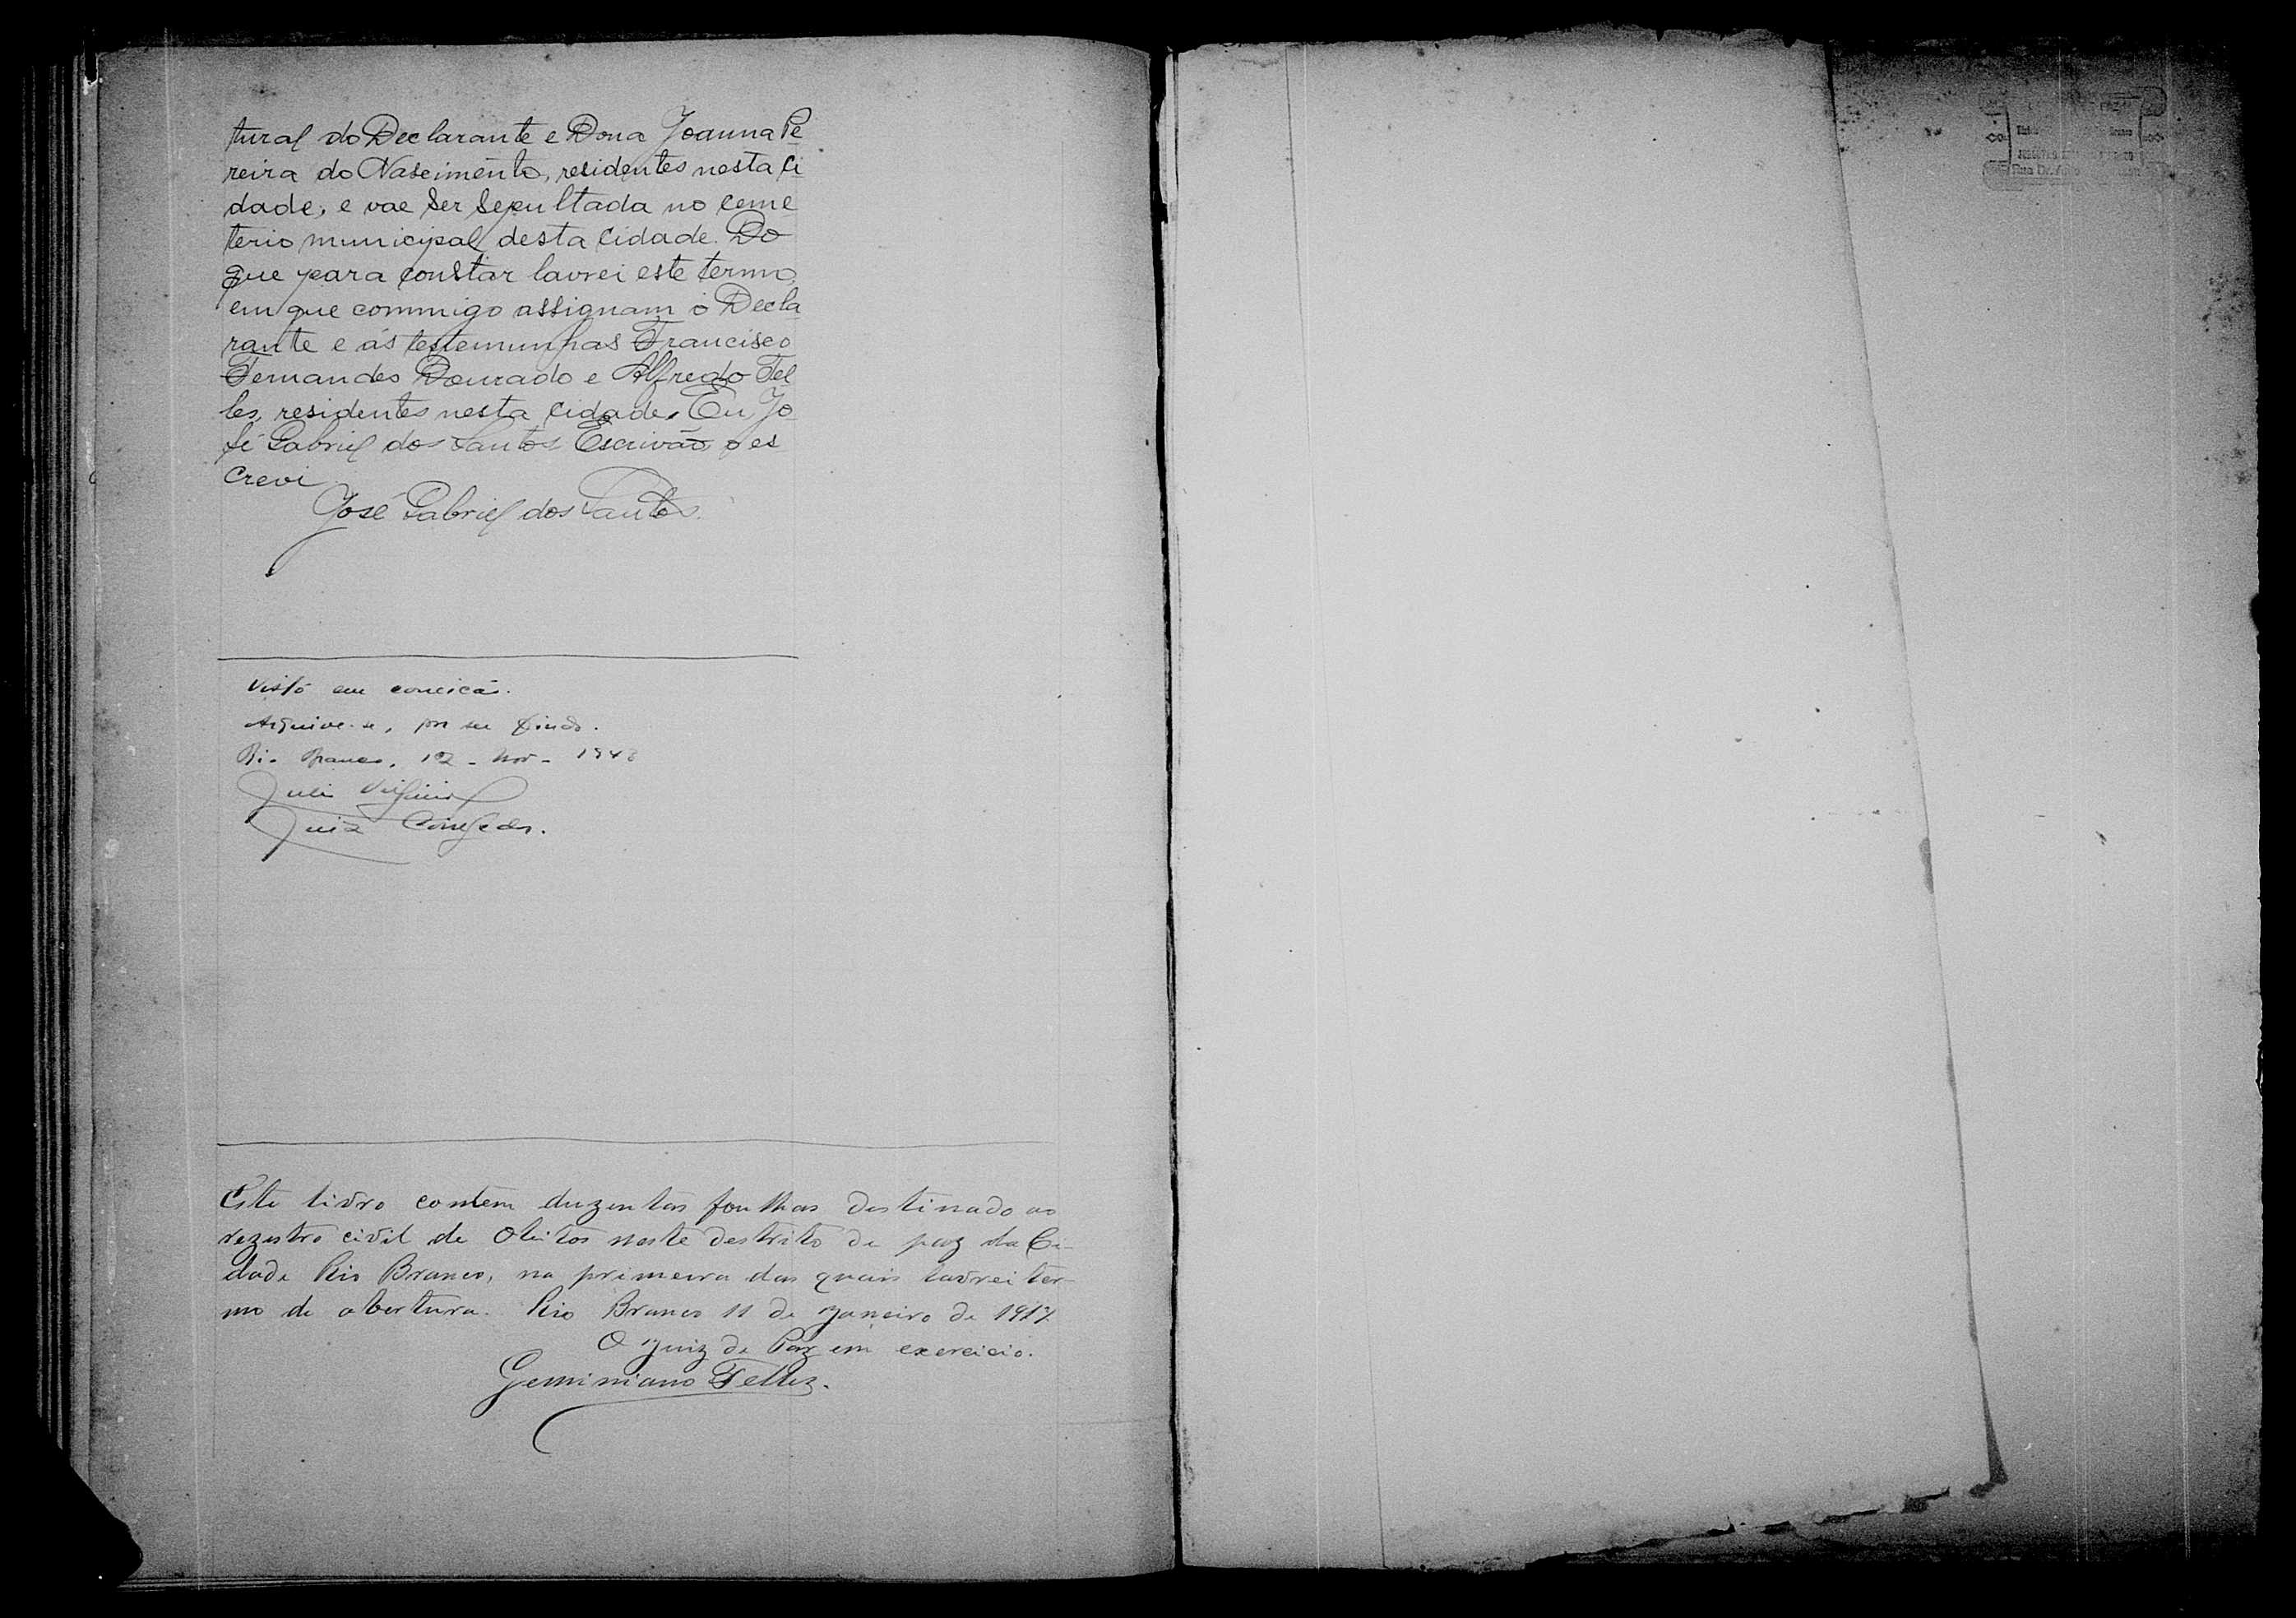 tural do Declarante e Dona Joanna Pe
reira do Nascimento, residentes nesta Ci
dade, e vae ser sepultada no ceme
terio municipal desta Cidade. Do
que para constar lavrei este termo,
em que commigo assignam o Decla
rante e ás testemunhas Francisco
Fernandes Dourado e Alfredo Tel
les, residentes nesta Cidade, Eu, Jo
sé Gabriel dos Santos Escrivão o es
crevi
José Gabriel dos Santos.
Visto em correição.
Archive-se, por ser findo.
Rio Branco, 12 - Nov -
Juiz
Este livro contem duzentas foulhas destinado ao
rezistro civil de Obitos neste destrito de paz da Ci-
dade Rio Branco, na primeira das quais lavrei ter-
mo de abertura. Rio Branco 11 de Janeiro de 1917
O Juiz de Paz em exercicio.
Geminiano Telles.